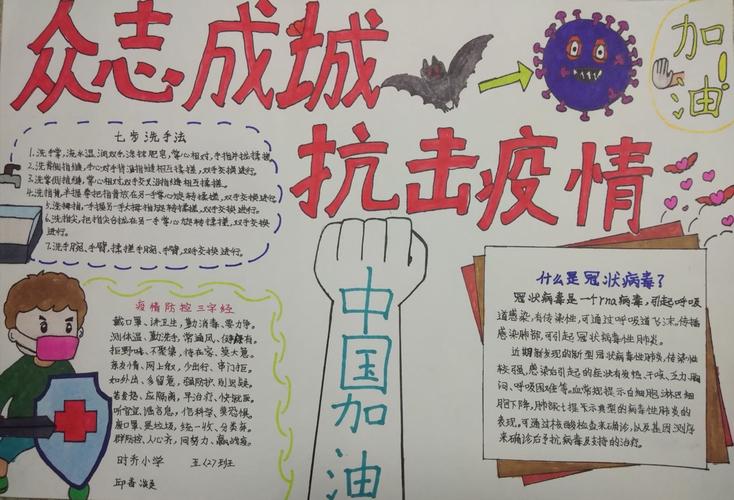 众志成城
抗击疫情
加油!
七步洗手法
1.洗手掌,流水湿润双手,涂抹肥皂,掌心相对,手指并拢揉搓
2.洗背侧指缝,手心对手背沿指缝相互揉搓,双手交换进行。
3.洗掌侧指缝,掌心相对,双手交叉沿指缝相互揉搓。
4.洗指背,手握拳把指背放在另一手掌心旋转揉搓,双手交换进行
5.洗拇指,一手握另一手大拇指旋转揉搓,双手交换进行。
6.洗指尖,把指尖合拢在另一手掌心旋转揉搓,双手交换
进行。
7.洗手腕、手臂,揉搓手腕、手臂,双手交换进行。
疫情防控三字经
戴口罩、讲卫生,勤消毒、要力争。
测体温、勤洗手,常通风、
拒野味、不聚集,待在家、莫大意。
亲友情、网上叙,少出行、串门拒。
如外出、多留意,强防护、别见疑。
若发热、应隔离,早治疗、快就医。
听官宣、谣言息,信科学、莫恐惧。
废口罩、是垃圾,统一收、分类弃。
群防控、人心齐,同努力、赢战疫。
时乔小学 五(27)班
邱
中国加油
什么是冠状病毒?
冠状病毒是一个rna病毒,引起呼吸
道感染,有传染性,可通过呼吸道飞沫,传播
感染肺部,可引起冠状病毒性肺炎。
近期新发现的新型冠状病毒性肺炎,传染性
较强,感染后引起的症状有发热、干咳、乏力、胸
闷、呼吸困难等。血常规提示白细胞、淋巴细
胞下降,肺部ct提示典型的病毒性肺炎的
表现。可通过核酸检查来确诊,以及基因测序
来确诊后予抗病毒及支持的治疗。